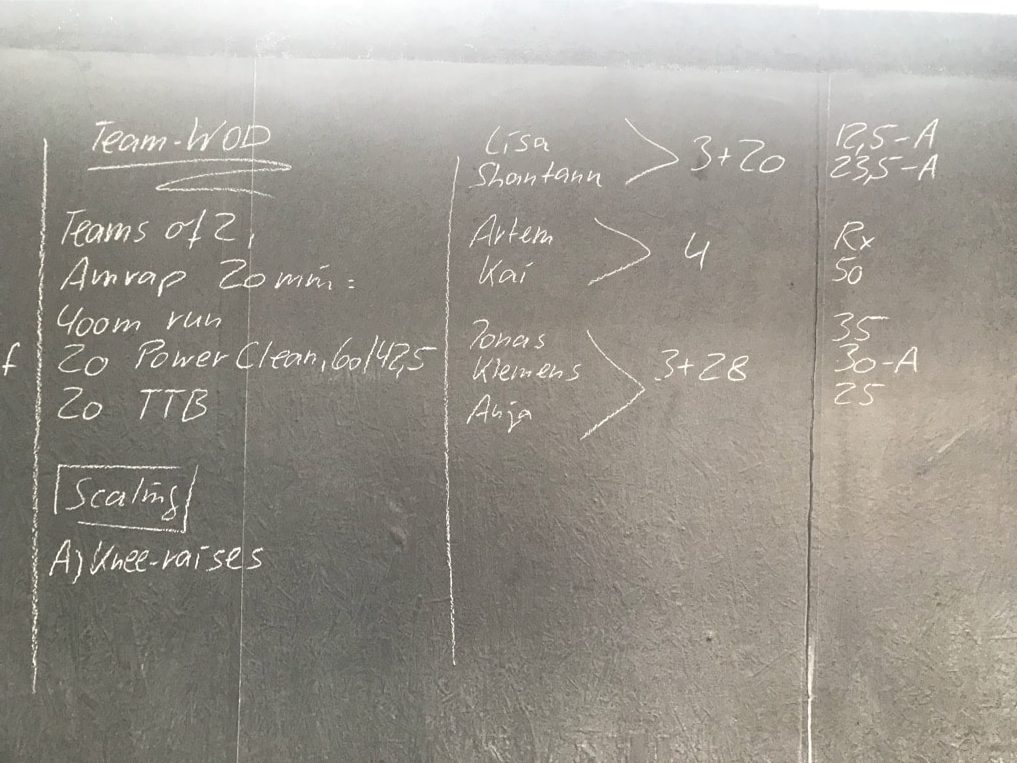 Team-WOD
Teams of 2,
Amrap 20 min:
400m run
f 20 Power Clean, 60/42,5
20 TTB
Scaling
A) Knee-raises
Lisa
Shantann
3+20
12,5-A
23,5-A
Artem
Kai
4
Rx
50
Jonas
Klemens
Anja
3+28
35
30-A
25